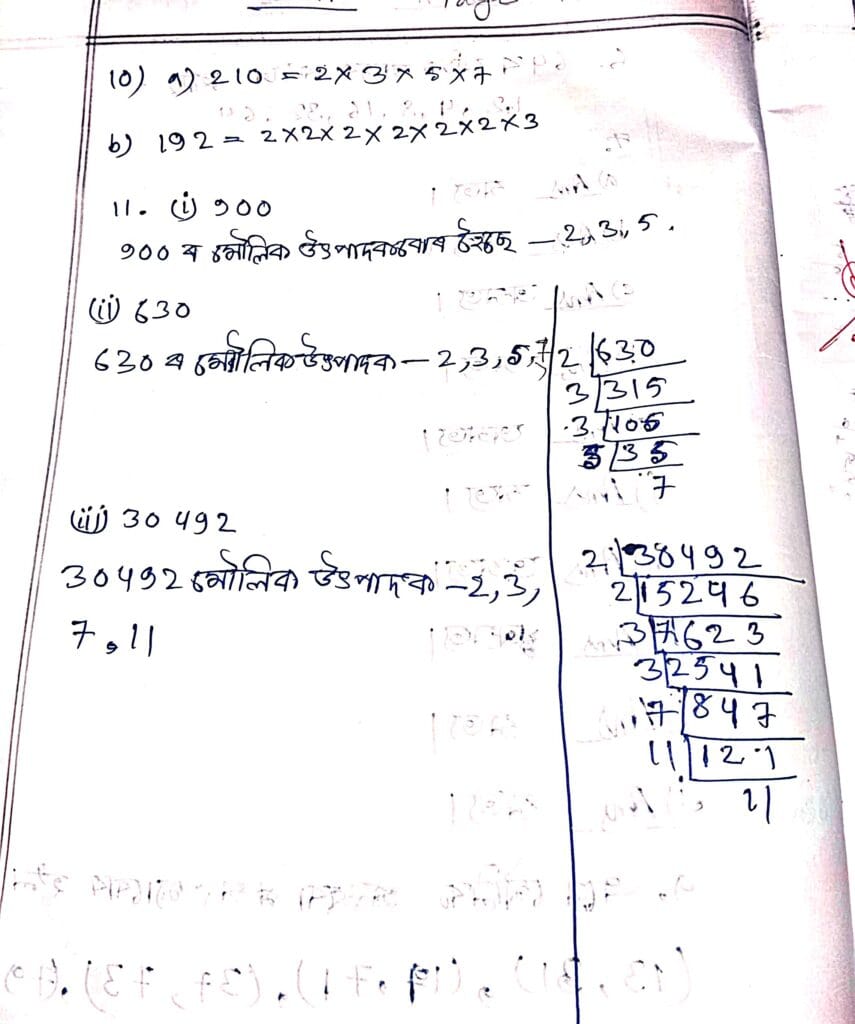 Page
10) a) 210 = 2 × 3 × 5 × 7
b) 192 = 2 × 2 × 2 × 2 × 2 × 2 × 3
11. (i) 900
900 ৰ মৌলিক উৎপাদকবোৰ হৈছে – 2, 3, 5.
(ii) 630
630 ৰ মৌলিক উৎপাদক – 2, 3, 5, 7
2 630
3 315
3 105
5 35
7
(iii) 30492
30492 মৌলিক উৎপাদক – 2, 3,
7, 11
2 30492
2 15246
3 7623
3 2541
7 847
11 121
11